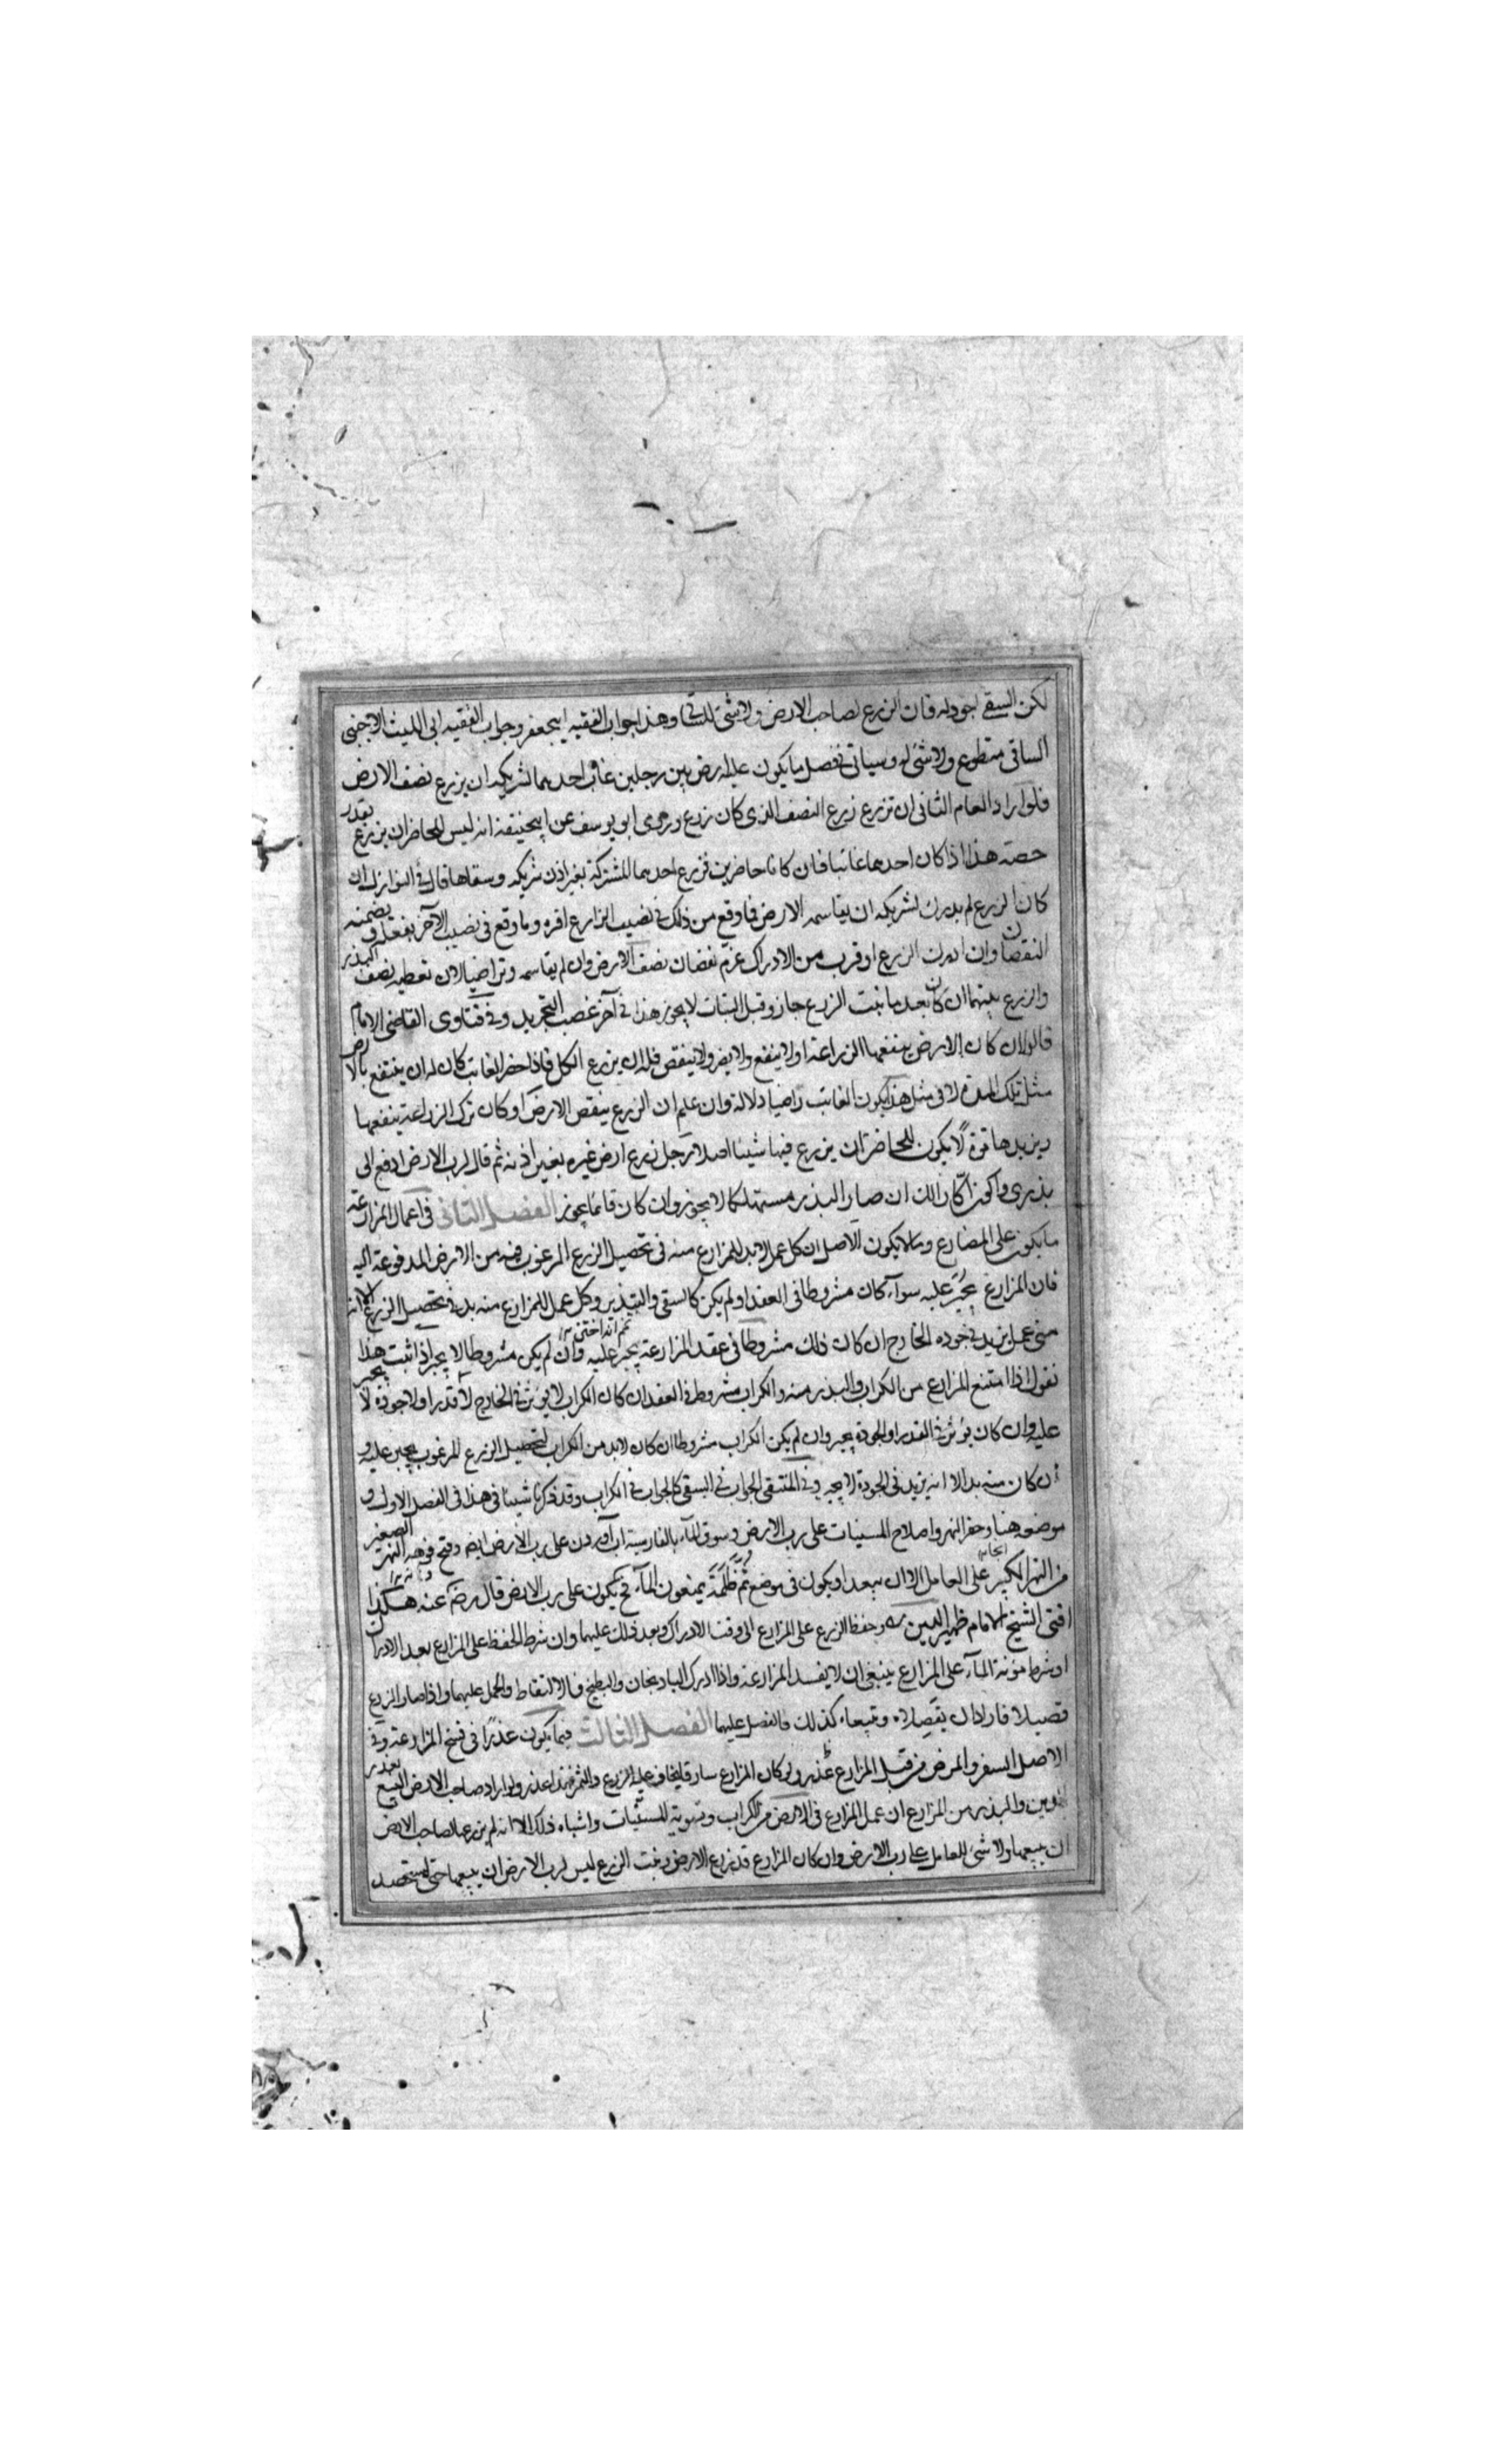 لكن السقي اجود له فان الزرع لصاحب الارض ولا شئ للساقي وهذا جواب الفقيه ابيجعفر وجواب الفقيه ابى الليث الاجنبى
الساقى متطوع ولا شئ له وسياتى فصل ما يكون عليه ارض بين رجلين غاب احدهما لشريكه ان يزرع نصف الارض
فلو اراد العام الثانى ان تزرع زرع النصف الذى كان زرع وروى ابو يوسف عن ابيحنيفة انه ليس للحاضر ان يزرع بقدر
حصته هذا اذا كان احدهما غائبا فان كانا حاضرين فزرع احدهما المشتركة بغير اذن شريكه وسقاها قال فى النوازل ان
كان الزرع لم يدرك لشريكه ان يقاسمه الارض فما وقع من ذلك فى نصيب الزارع اقره وما وقع فى نصيب الآخر يقلعه ويضمنه
النقصان وان ادرك الزرع او قرب من الادراك غرم نقصان نصف الارض وان لم يقاسمه وتراضيا لان تعطيه نصف البذر
والزرع بينهما ان كان بعد ما نبت الزرع جاز وقبل النبات لا يجوز هذا فى آخر غصب التجريد وفى فتاوى القاضى الامام
قالوا ان كان الارض ينفعها الزراعة او لا ينفع ولا يضر ولا ينقص فله ان يزرع الكل فاذا حضر الغائب كان له ان ينتفع بالارض
مثل تلك المدة لا فى مثل هذا يكون الغائب راضيا دلالة وان علم ان الزرع ينقص الارض او كان ترك الزراعة ينفعها
ويزيدها قوة لا يكون للحاضر ان يزرع فيها شيئا اصلا رجل زرع ارض غيره بغير اذنه ثم قال لرب الارض ادفع الى
بذرى واكون اكارا لك ان صار البذر مستهلكا لا يجوز وان كان قائما يجوز الفصل الثانى فى اعمال المزارعة
ما يكون على المضارع وما لا يكون الاصل ان كل عمل لابد للمزارع منه فى تحصيل الزرع المرغوب فيه من الارض المدفوعة اليه
فان المزارع يجبر عليه سواء كان مشروطا فى العقد او لم يكن كالسقى والتبذير وكل عمل للمزارع منه بد فى تحصيل الزرع الا انه
متى عمل يزيد فى جوده الخارج ان كان ذلك مشروطا فى عقد المزارعة يجبر عليه وان لم يكن مشروطا لا يجبر اذا ثبت هذا
نقول اذا امتنع المزارع من الكراب والبذر منه والكراب مشروط فى العقد ان كان الكراب لا يوثر فى الخارج لا قدرا ولا جودة لا يجبر
عليه وان كان يؤثر فى القدر او الجودة يجبر وان لم يكن الكراب مشروطا ان كان لابد من الكراب لتحصيل الزرع المرغوب يجبر عليه و
ان كان منه بد الا انه يزيد فى الجودة لا يجبر وفى المنتقى الجواب فى السقى كالجواب فى الكراب وقد ذكرنا شيئا فى هذا فى الفصل الاول و
موضعه هنا وحفر النهر واصلاح المسنيات على رب الارض وسوق الماء بالفارسية اب آوردن على رب الارض ايضا وفتح فوهة النهر الصغير
من النهر الكبير على العامل الا ان يبعد او يكون فى موضع ثم ظلمة يمنعون الماء فح يكون على رب الارض قال رضى عنه هكذا
افتى الشيخ الامام ظهير الدين وحفظ الزرع على المزارع الى وقت الادراك وبعد ذلك عليهما وان شرط الحفظ على المزارع بعد الادراك
او شرط مؤنة الماء على المزارع ينبغى ان لا يفسد المزارعة واذا ادرك الباذنجان والبطيخ فالالتقاط والحمل عليهما واذا صار الزرع
قصيلا فارادا ان يقصلاه ويبيعاه كذلك فالفصل عليهما الفصل الثالث فيما يكون عذرا فى فسخ المزارعة وفى
الاصل السفر والمرض من قبل المزارع عذر ولو كان المزارع سارقا يخاف على الزرع والثمر فهذا عذر ولو اراد صاحب الارض البيع بعذر
الدين والبذر من المزارع ان عمل المزارع فى الارض من الكراب وتسوية المسنيات واشباه ذلك الا انه لم يزرعها لصاحب الارض
ان يبيعها ولا شئ للعامل على رب الارض وان كان المزارع قد زرع الارض ونبت الزرع ليس لرب الارض ان يبيعها حتى يستحصد